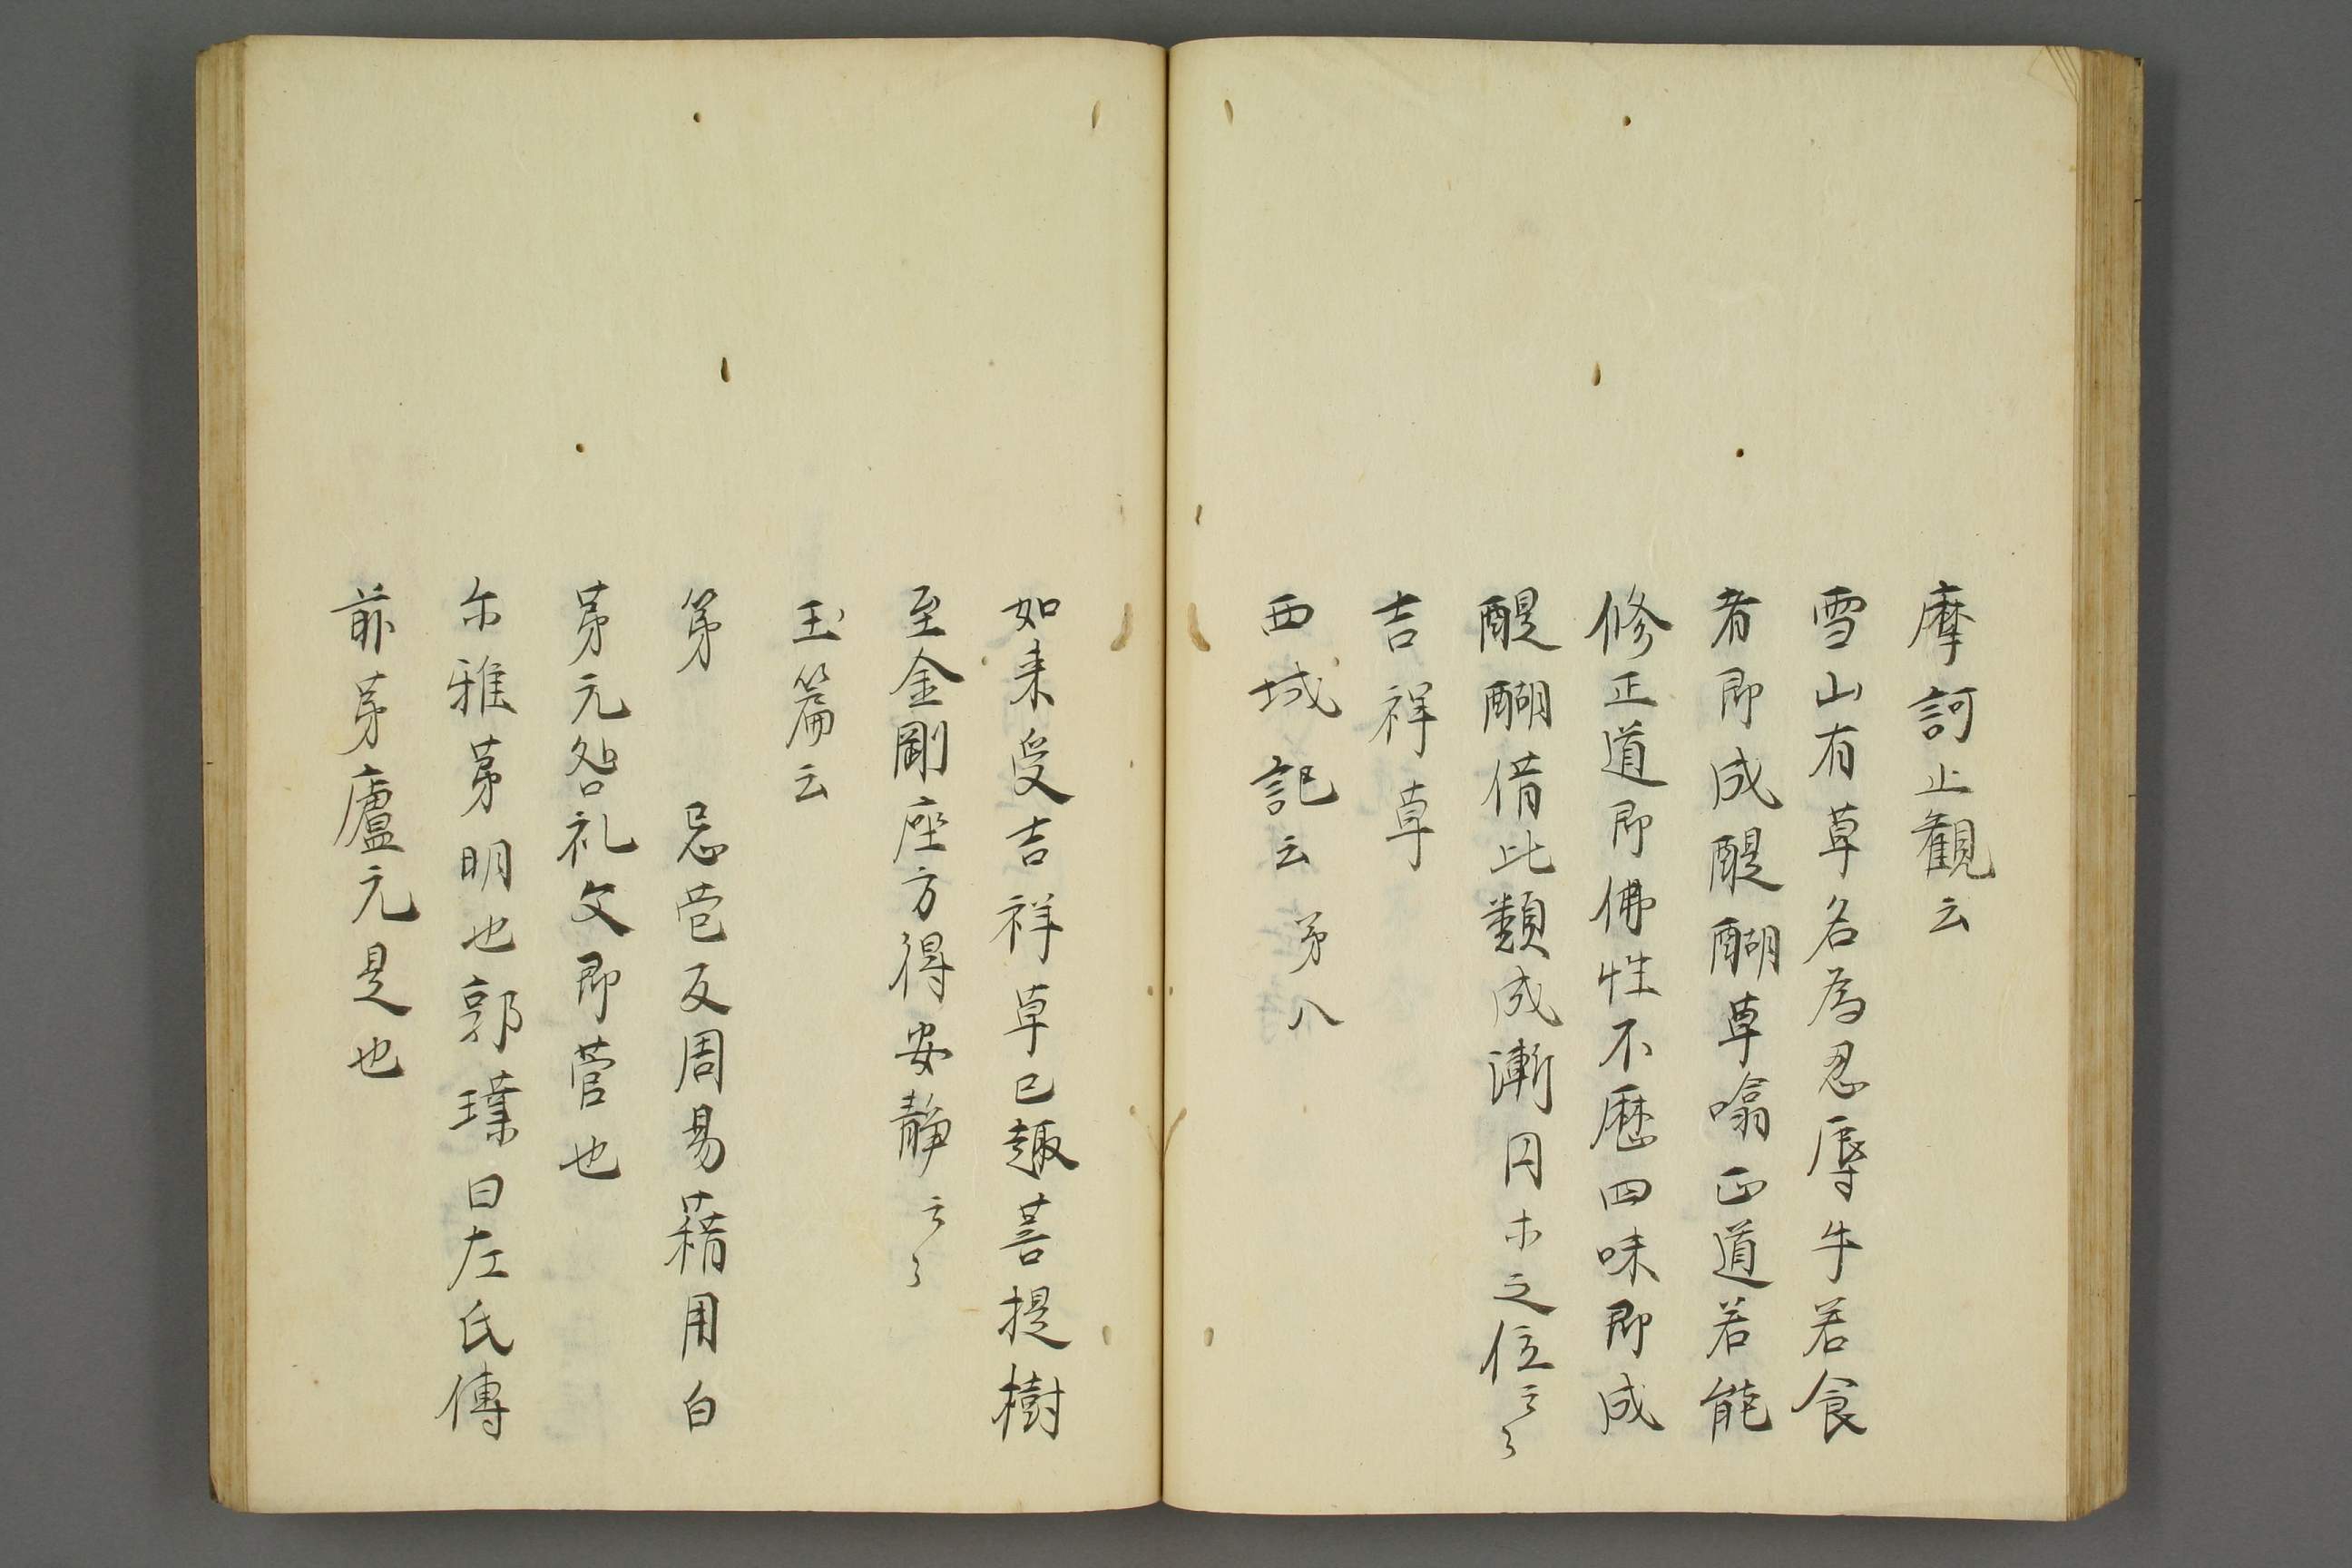 摩訶止観云
雪山有草名為忍辱牛若食
者即成醍醐草噏正道若能
修正道即佛性不歴四味即成
醍醐借此類成漸円木之位云々
吉祥草
西域記云第八
如来受吉祥草已趣菩提樹
至金剛座方得安静云々
玉篇云
茅 忌苞反周易藉用白
茅元咎礼文即菅也
尓雅茅明也郭璞曰左氏傳
前茅慮元是也